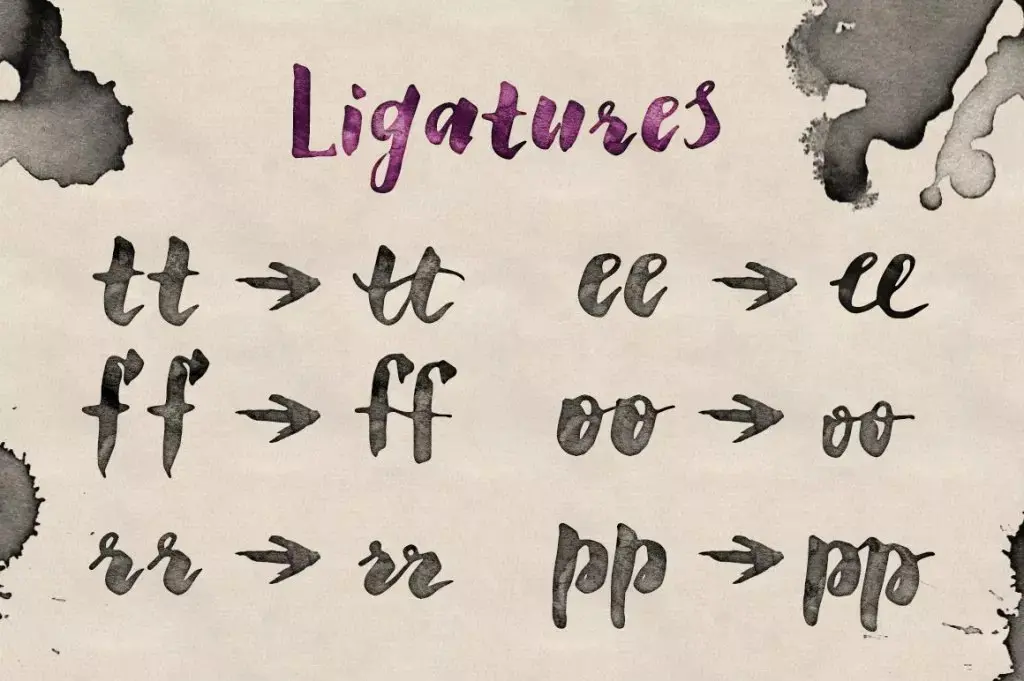 Ligatures
tt → tt ee → ee
ff → ff oo → oo
rr → rr pp → pp